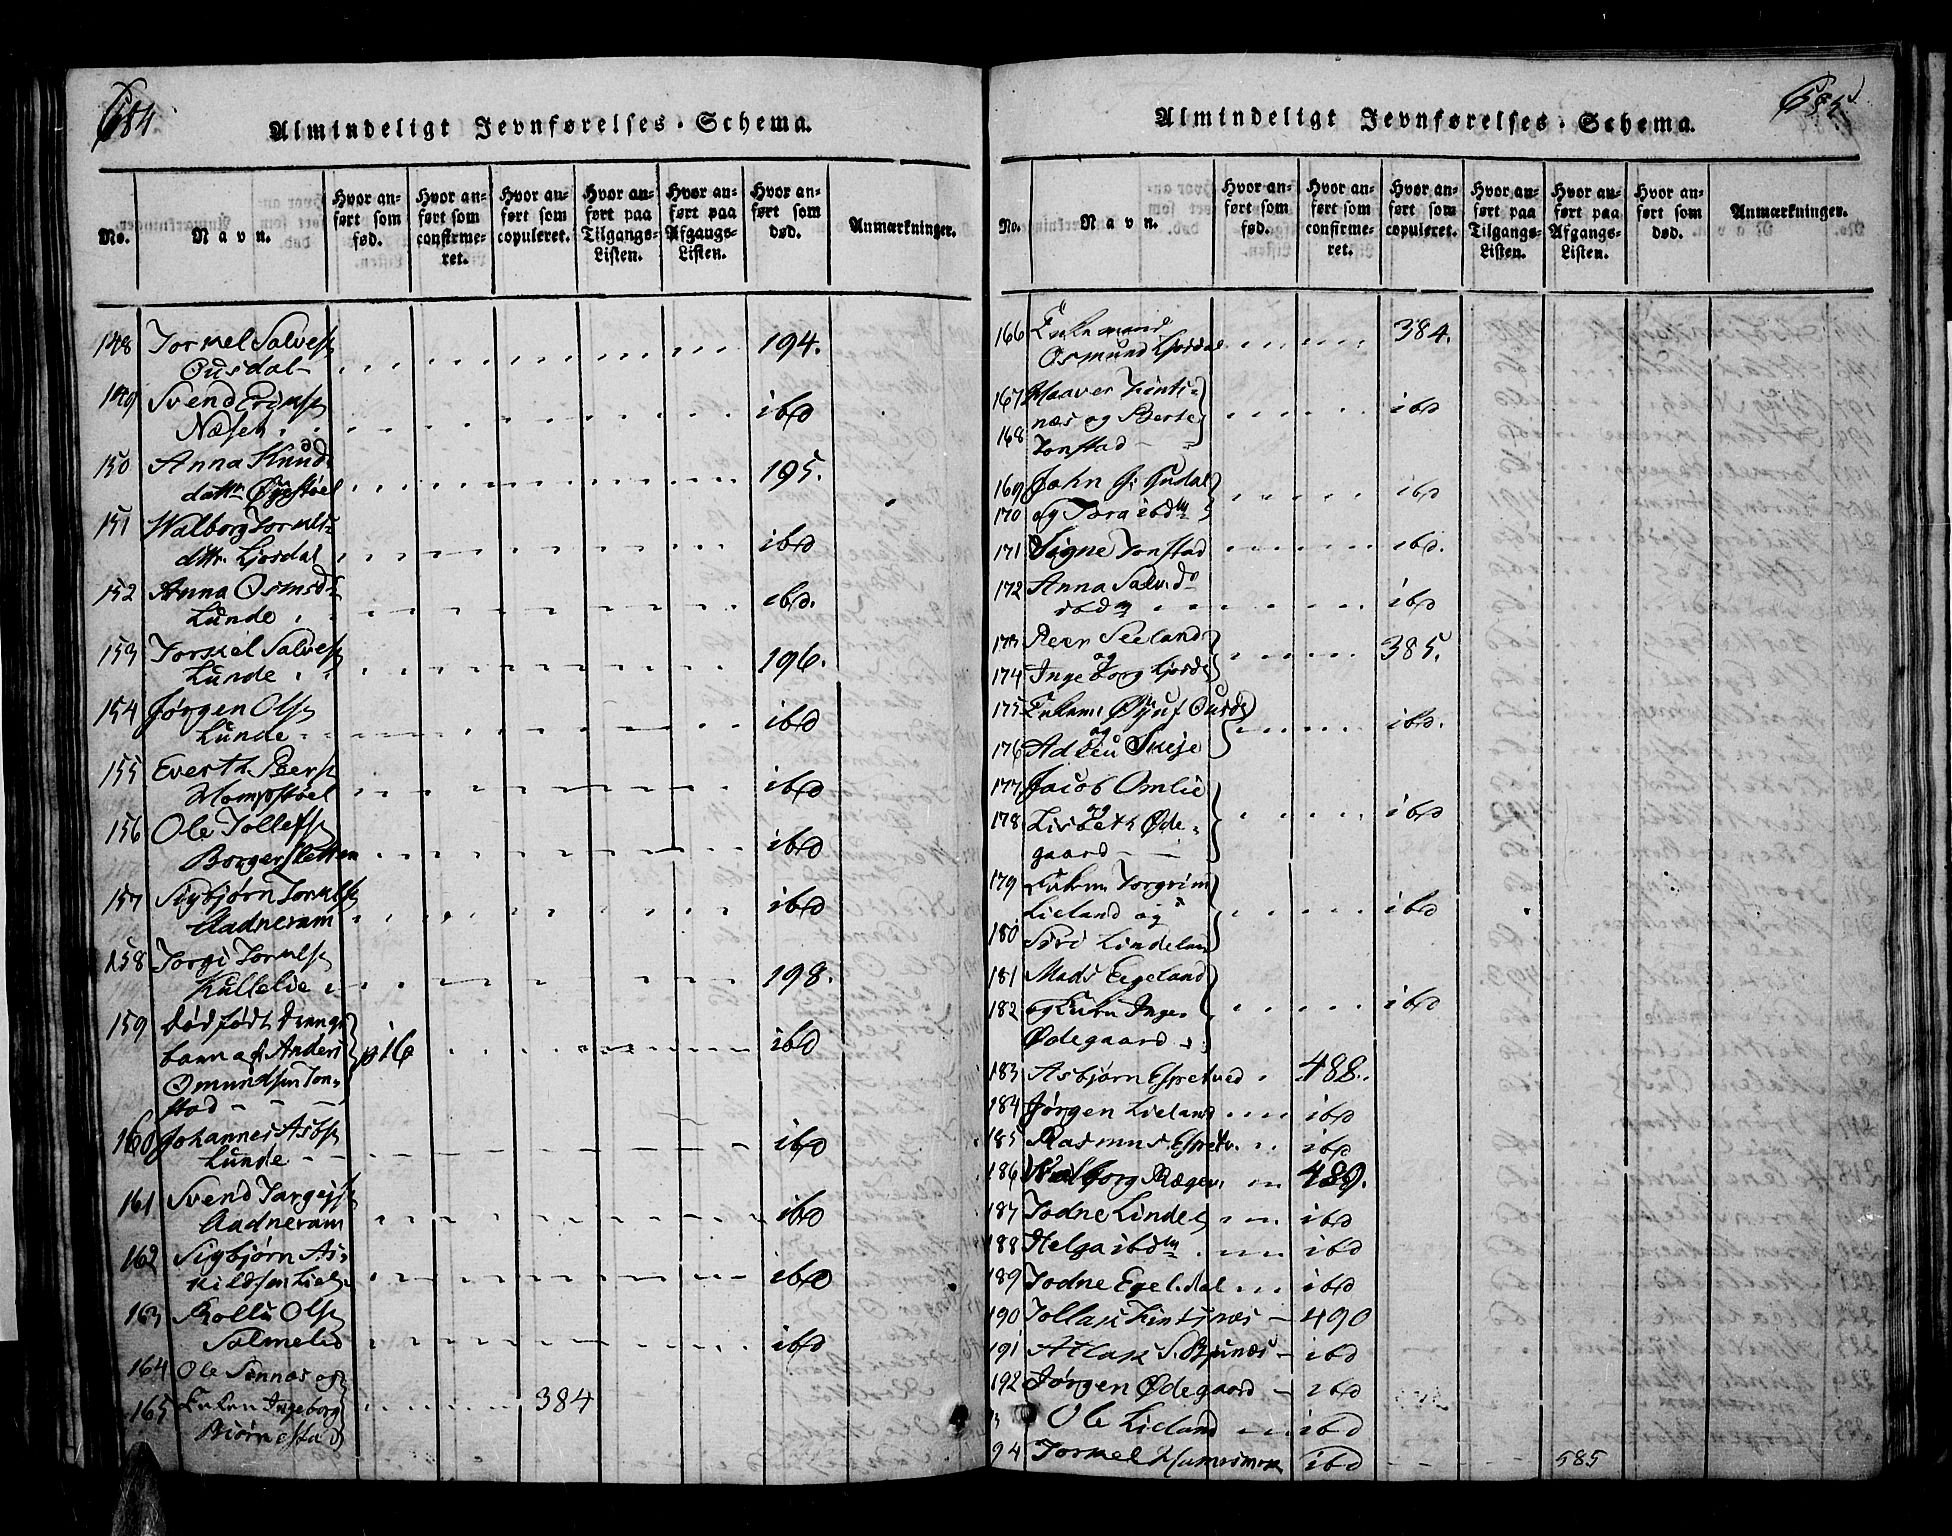 684
Almindeligt Jevnførelses-Schema.
No.
Navn.
Hvor anført som fød.
Hvor anført som confirmeret.
Hvor anført som copuleret.
Hvor anført paa Tilgangs-Listen.
Hvor anført paa Afgangs-Listen.
Hvor anført som død.
Anmærkninger.
148 Torkel Salves
Ousdal 194.
149 Svend
Næsen ibd
150 Anna Knuds
datter Øyestøel 195.
151 Walborg Torkels
dttr. Liosdal ibd
152 Anna Osmsd
Lunde ibd.
153 Torkel Salves
Lunde 196.
154 Jørgen Ols
Lunde ibd
155 Everth Peers
Hompstøel ibd
156 Ole Tollefs
Borgersletten ibd
157 Sigbjørn Torkels
Aadneram ibd
158 Torgi Torkels
Kullelie 198.
159 dødfødt Drenge
barn af Anders p16 ibd
Omundsen Ton-
stad
160 Johannes Asbs
Lunde ibd
161 Svend Targejs
Aadneram ibd
162 Sigbjørn As-
kildsen Liel ibd
163 Rolli Ols
Salmelid ibd
164 Ole Sinnæs og
165 Enken Ingeborg 384
Biørnestad
685
Almindeligt Jevnførelses-Schema.
No.
Navn.
Hvor anført som fød.
Hvor anført som confirmeret.
Hvor anført som copuleret.
Hvor anført paa Tilgangs-Listen.
Hvor anført paa Afgangs-Listen.
Hvor anført som død.
Anmærkninger.
166 Enkemand 384.
Osmund Liosdal
167 Haaver Fints-
168 næs og Berte ibd
Tonstad
169 John G. Sudal ibd
170 og Tora ibdm
171 Signe Tonstad ibd.
172 Anna Salvd
ibdm ibd
173 Peer Seeland
og 385.
174 Ingeborg Liosd
175 Enkem. Øjuf Ousd
og ibd.
176 Skeje
177 Jacob Omlie
og
178 Lisbeth Øde- ibd
gaard
179 Enkem Torgrim
Lieland og ibd
180 Siri Lindelan
181 Mads Egeland
182 og Enken Inge ibd
Ødegaard
183 Asbjørn Espetved 488.
184 Jørgen Lieland ibd
185 Rasmus Espetv. ibd
186 Walborg Ræge 489.
187 Todne Lindel ibd
188 Helga ibdm ibd
189 Todne Egelsdal ibd
190 Tollak Fintsnæs 490
191 Atlak S. ibd
192 Jørgen Ødegaard ibd
3 Ole Lieland ibd
94 Torkel ibd
585